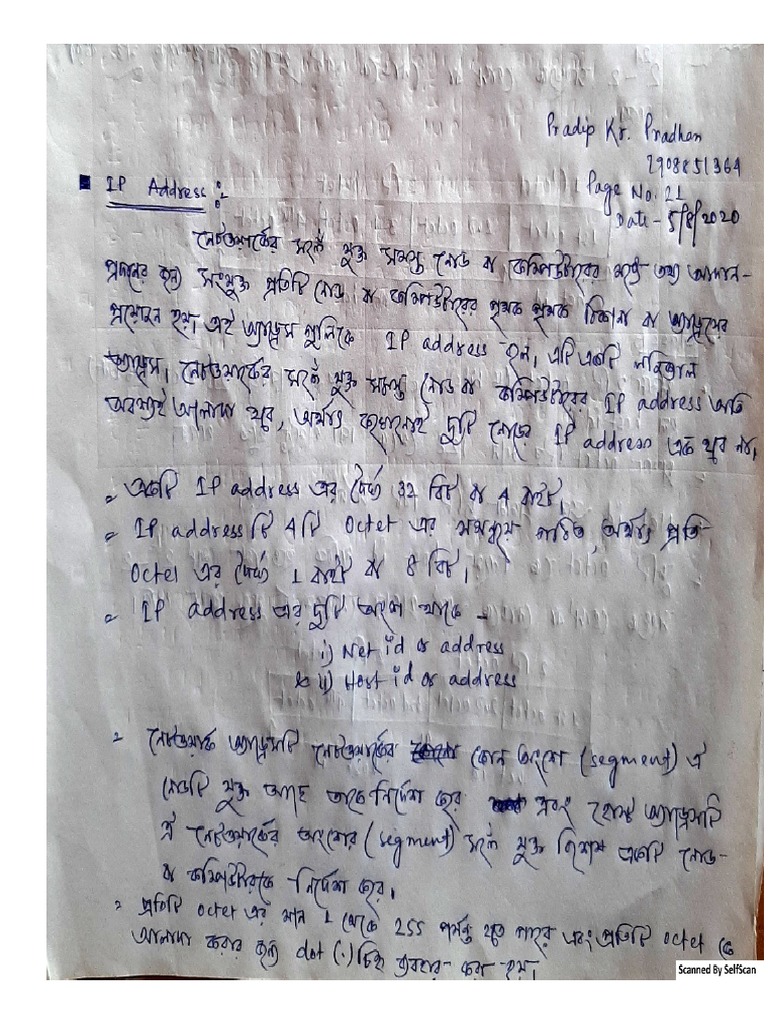 Pradip Kr. Pradhan
2908851364
Page No. 21
Date - 5/8/2020
IP Address :
নেটওয়ার্কের সঙ্গে যুক্ত সমস্ত নোড বা কম্পিউটারের মধ্যে তথ্য আদান-
প্রদানের জন্য সংযুক্ত প্রতিটি নোড বা কম্পিউটারের পৃথক পৃথক ঠিকানা বা অ্যাড্রেসের
প্রয়োজন হয়। এই অ্যাড্রেস গুলিকে IP address বলে। এটি একটি লজিক্যাল
অ্যাড্রেস। নেটওয়ার্কের সঙ্গে যুক্ত সমস্ত নোড বা কম্পিউটারের IP address অতি
অবশ্যই আলাদা হবে, অর্থাৎ কখনোই দুটি নোডের IP address এক হবে না।
একটি IP address এর দৈর্ঘ্য 32 বিট বা 4 বাইট।
IP address টি 4টি Octet এর সমন্বয়ে গঠিত, অর্থাৎ প্রতি-
Octet এর দৈর্ঘ্য 1 বাইট বা 8 বিট।
IP address এর দুটি অংশ থাকে -
i) Net id or address
ii) Host id or address
নেটওয়ার্ক অ্যাড্রেসটি নেটওয়ার্কের কোন অংশে (segment) ঐ
নোডটি যুক্ত আছে তাকে নির্দেশ করে এবং হোস্ট অ্যাড্রেসটি
ঐ নেটওয়ার্কের অংশের (segment) সঙ্গে যুক্ত বিশেষ একটি নোড-
বা কম্পিউটারকে নির্দেশ করে।
প্রতিটি octet এর মান 1 থেকে 255 পর্যন্ত হতে পারে এবং প্রতিটি octet কে
আলাদা করার জন্য dot (.) চিহ্ন ব্যবহার করা হয়।
Scanned By SelfScan